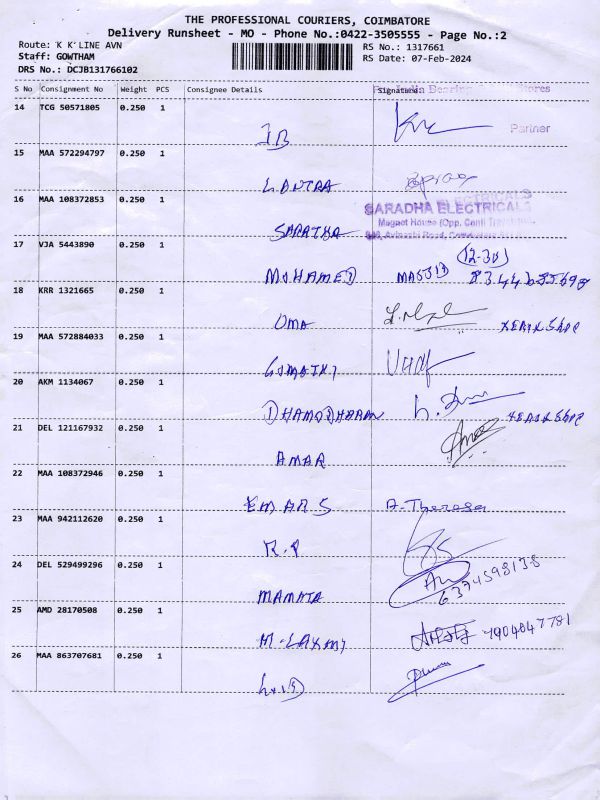 THE PROFESSIONAL COURIERS, COIMBATORE
Delivery Runsheet - MO - Phone No.:0422-3505555 - Page No.:2
Route: K K LINE AVN
RS No.: 1317661
Staff: GOWTHAM
RS Date: 07-Feb-2024
DRS No.: DCJB131766102
S No Consignment No Weight PCS Consignee Details Signature
India Bearing Stores
14 TCG 50571805 0.250 1
IB
Partner
15 MAA 572294797 0.250 1
LANTRA
16 MAA 108372853 0.250 1
SARADHA ELECTRICALS
Magnet House (Opp. Conti
SARATHA
17 VJA 5443890 0.250 1
(12-30)
MOHAMED MASJID
18 KRR 1321665 0.250 1
UMA XEROX SHOP
19 MAA 572884033 0.250 1
GOMATHI
20 AKM 1134067 0.250 1
DHAMODHARAN XEROX SHOP
21 DEL 121167932 0.250 1
AMAR
22 MAA 108372946 0.250 1
EMARS A-Theresa
23 MAA 942112620 0.250 1
R.P
24 DEL 529499296 0.250 1
6374598138
MAMATA
25 AMD 28170508 0.250 1
M-LAXMI 4904047781
26 MAA 863707681 0.250 1